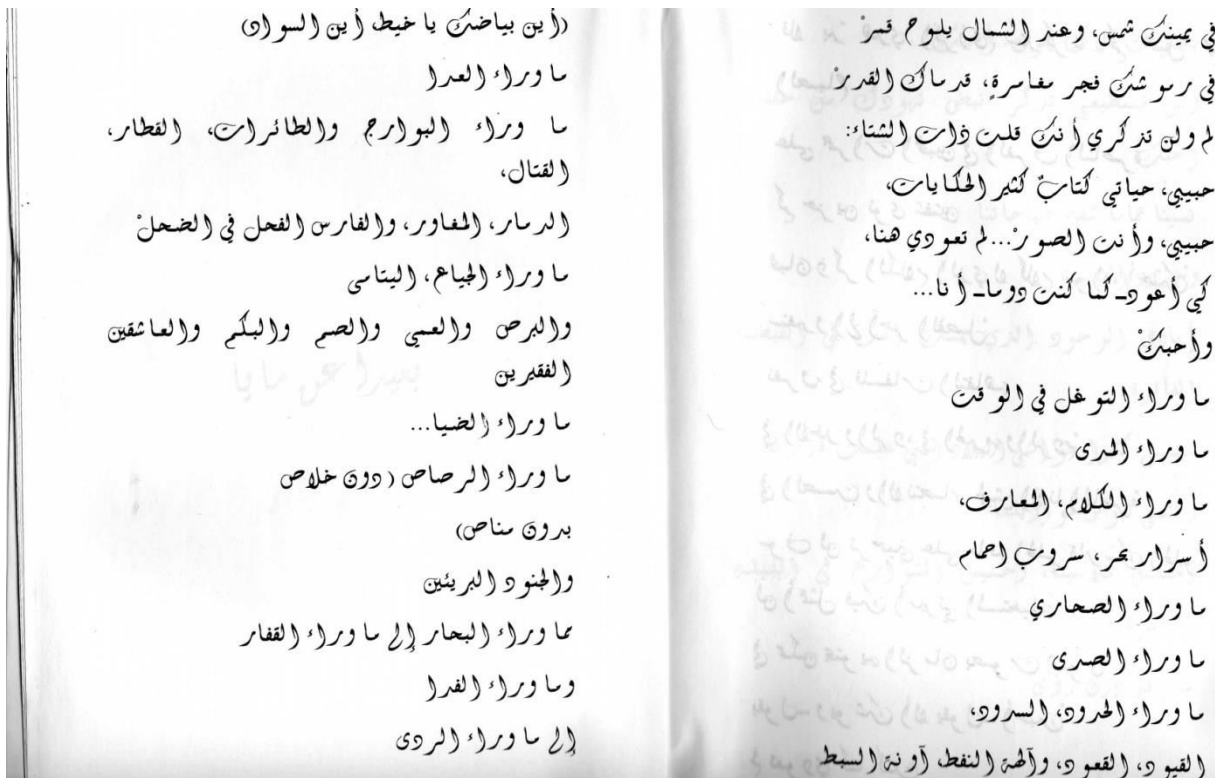 في يمينك شمس، وعند الشمال يلوح قمرْ
في رموشك فجر مغامرةٍ، قد رماك القدرْ
لم ولن تذكري أنك قلت ذات الشتاء:
حبيبي، حياتي كتابٌ كثير الحكايات،
حبيبي، وأنت الصورْ...لم تعودي هنا،
كي أعود ـ كما كنت دوما ـ أنا...
وأحبكْ
ما وراء التوغل في الوقت
ما وراء المدى
ما وراء الكلام، المعارف،
أسرار بحر، سروب احمام
ما وراء الصحاري
ما وراء الصدى
ما وراء الحدود، السدود،
القيود، القعود، وآلهة النفط، آونة السبط
(أين بياضك يا خيط، أين السواد)
ما وراء العدا
ما وراء البوارج والطائرات، القطار،
القتال،
الدمار، المغاور، والفارس الفحل في الضحلْ
ما وراء الجياع، اليتامى
والبرص والعمي والصم والبكم والعاشقين
الفقيرين
ما وراء الضيا...
ما وراء الرصاص (دون خلاص
بدون مناص)
والجنود البريئين
مما وراء البحار إلى ما وراء القفار
وما وراء الفدا
إلى ما وراء الردى